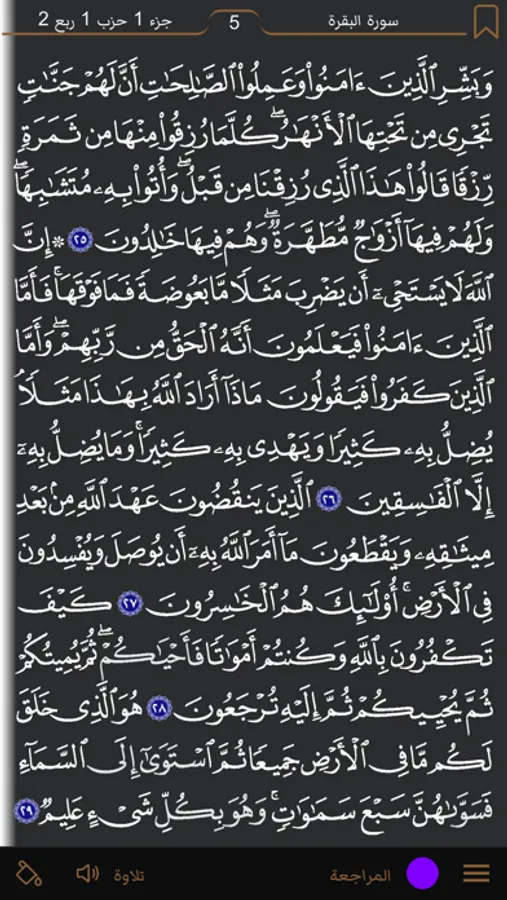 سورة البقرة 5 جزء 1 حزب 1 ربع 2
وَبَشِّرِ ٱلَّذِينَ ءَامَنُوا۟ وَعَمِلُوا۟ ٱلصَّـٰلِحَـٰتِ أَنَّ لَهُمْ جَنَّـٰتٍ
تَجْرِى مِن تَحْتِهَا ٱلْأَنْهَـٰرُ ۖ كُلَّمَا رُزِقُوا۟ مِنْهَا مِن ثَمَرَةٍ
رِّزْقًا قَالُوا۟ هَـٰذَا ٱلَّذِى رُزِقْنَا مِن قَبْلُ ۖ وَأُتُوا۟ بِهِۦ مُتَشَـٰبِهًا ۖ
وَلَهُمْ فِيهَآ أَزْوَٰجٌ مُّطَهَّرَةٌ ۖ وَهُمْ فِيهَا خَـٰلِدُونَ ٢٥ ۞ إِنَّ
ٱللَّهَ لَا يَسْتَحْىِۦٓ أَن يَضْرِبَ مَثَلًا مَّا بَعُوضَةً فَمَا فَوْقَهَا ۚ فَأَمَّا
ٱلَّذِينَ ءَامَنُوا۟ فَيَعْلَمُونَ أَنَّهُ ٱلْحَقُّ مِن رَّبِّهِمْ ۖ وَأَمَّا
ٱلَّذِينَ كَفَرُوا۟ فَيَقُولُونَ مَاذَآ أَرَادَ ٱللَّهُ بِهَـٰذَا مَثَلًا ۘ
يُضِلُّ بِهِۦ كَثِيرًا وَيَهْدِى بِهِۦ كَثِيرًا ۚ وَمَا يُضِلُّ بِهِۦٓ
إِلَّا ٱلْفَـٰسِقِينَ ٢٦ ٱلَّذِينَ يَنقُضُونَ عَهْدَ ٱللَّهِ مِنۢ بَعْدِ
مِيثَـٰقِهِۦ وَيَقْطَعُونَ مَآ أَمَرَ ٱللَّهُ بِهِۦٓ أَن يُوصَلَ وَيُفْسِدُونَ
فِى ٱلْأَرْضِ ۚ أُو۟لَـٰٓئِكَ هُمُ ٱلْخَـٰسِرُونَ ٢٧ كَيْفَ
تَكْفُرُونَ بِٱللَّهِ وَكُنتُمْ أَمْوَٰتًا فَأَحْيَـٰكُمْ ۖ ثُمَّ يُمِيتُكُمْ
ثُمَّ يُحْيِيكُمْ ثُمَّ إِلَيْهِ تُرْجَعُونَ ٢٨ هُوَ ٱلَّذِى خَلَقَ
لَكُم مَّا فِى ٱلْأَرْضِ جَمِيعًا ثُمَّ ٱسْتَوَىٰٓ إِلَى ٱلسَّمَآءِ
فَسَوَّىٰهُنَّ سَبْعَ سَمَـٰوَٰتٍ ۚ وَهُوَ بِكُلِّ شَىْءٍ عَلِيمٌ ٢٩
المراجعة تلاوة